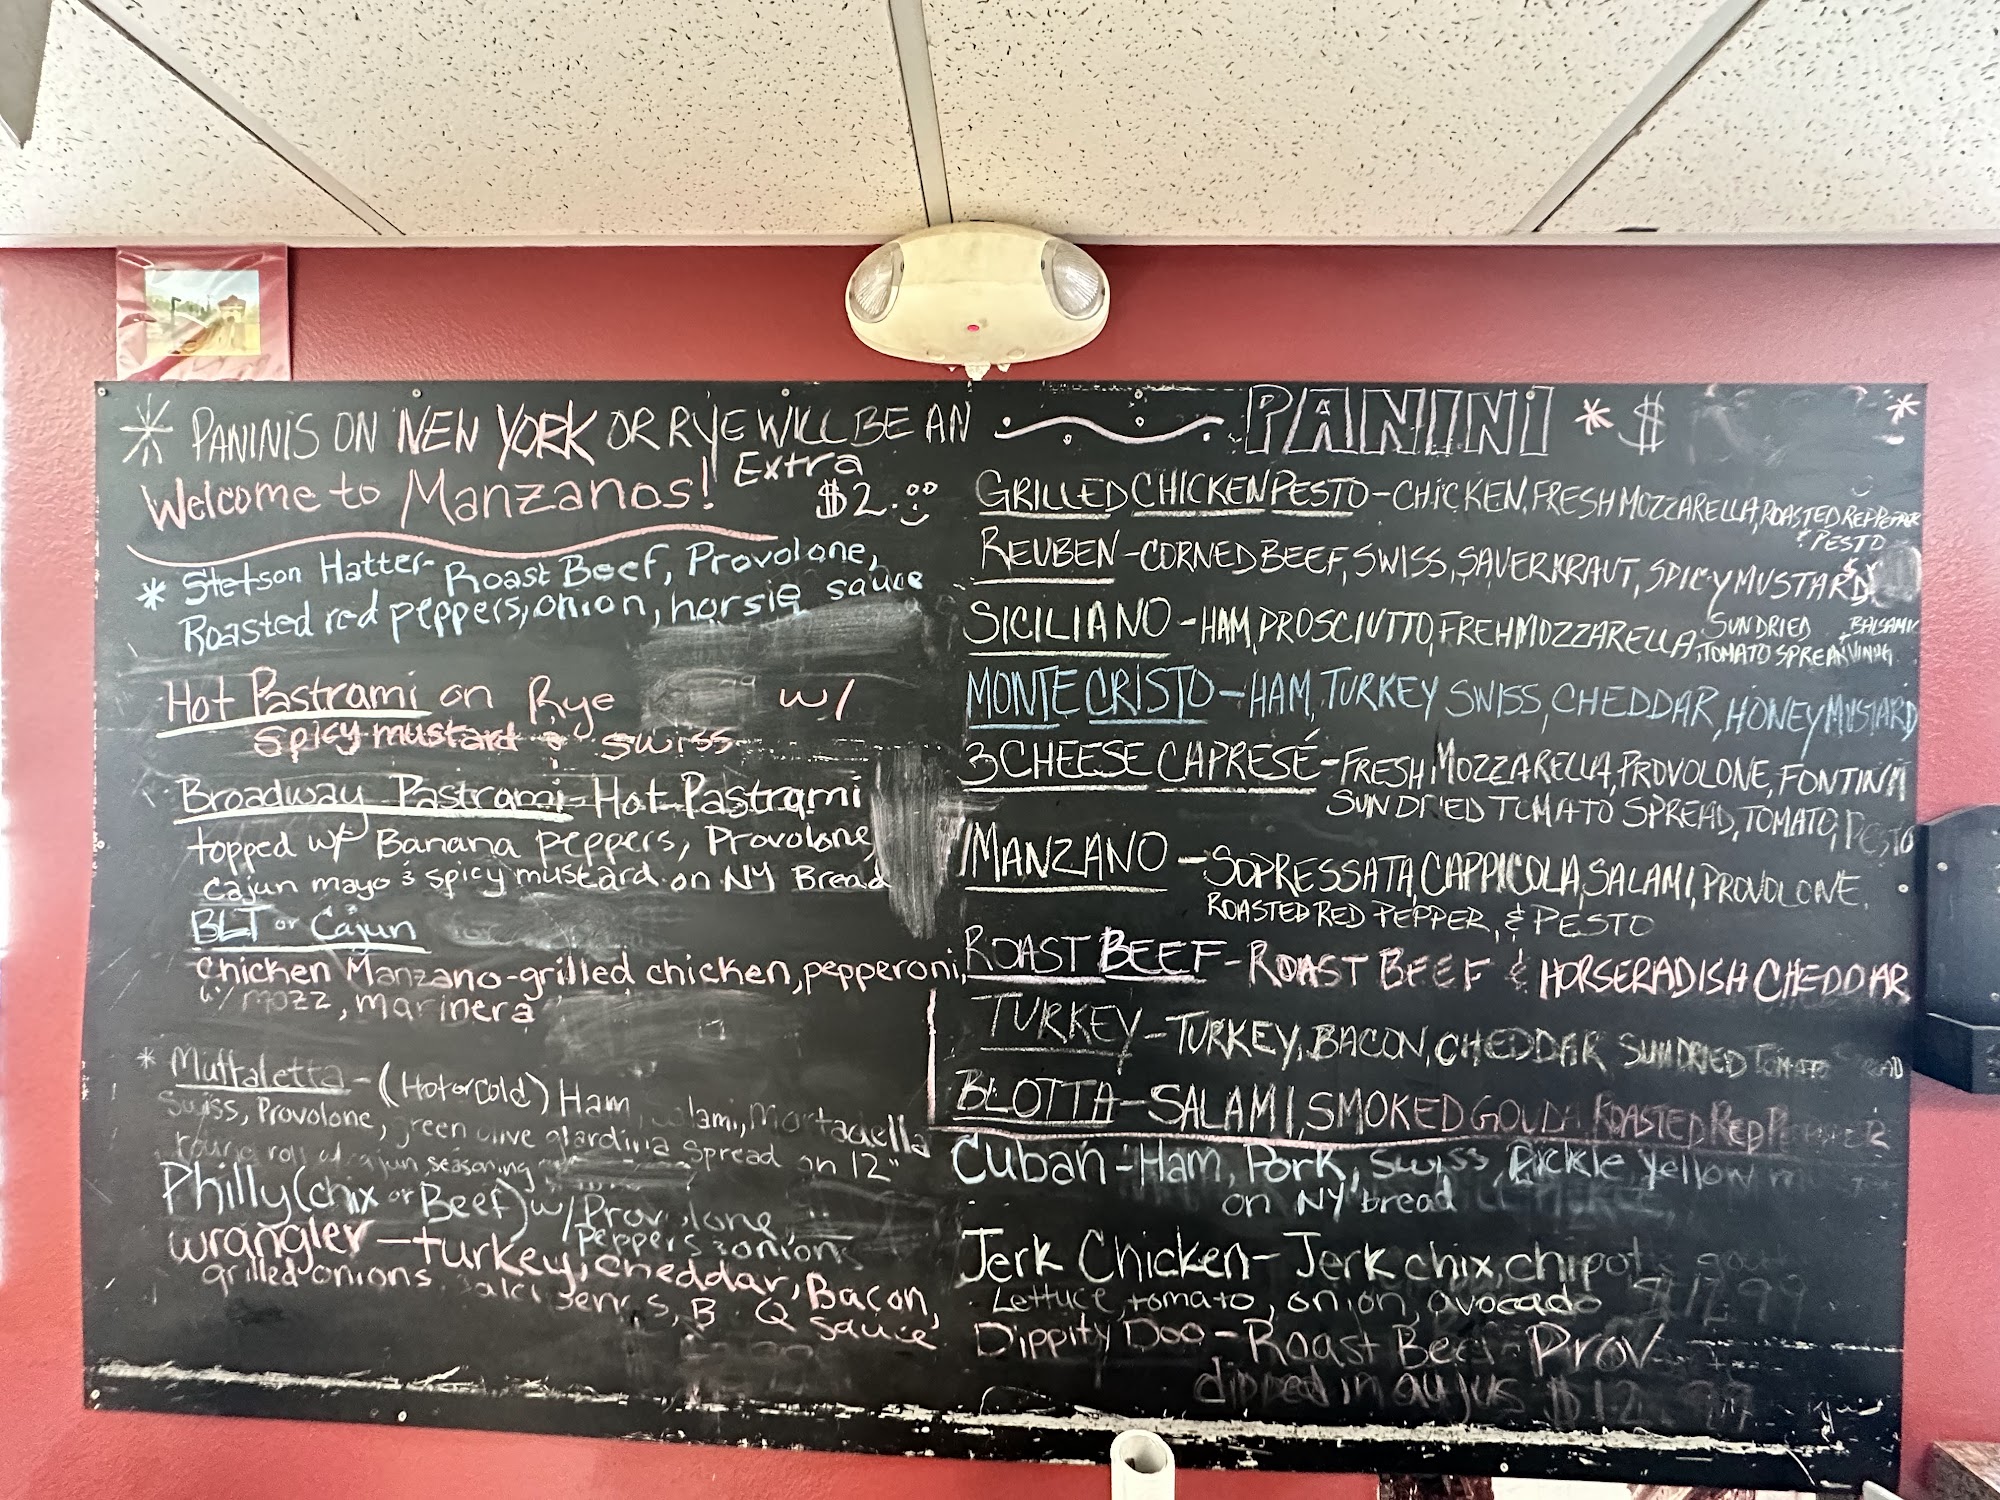 * PANINIS ON NEW YORK OR RYE WILL BE AN
Extra
$2.
Welcome to Manzanos!
* Stetson Hatter- Roast Beef, Provolone,
Roasted red peppers, onion, horsie sauce
Hot Pastrami on Rye w/
spicy mustard & swiss
Broadway Pastrami - Hot Pastrami
topped w/ Banana peppers, Provolone,
Cajun mayo & spicy mustard on NY Bread
BLT or Cajun
Chicken Manzano-grilled chicken, pepperoni,
w/ mozz, marinera
* Muffaletta - (Hot or Cold) Ham,
Swiss, Provolone, green olive giardinia Spread on 12"
round roll cajun seasoning
Philly (chix or Beef) w/ Provolone,
peppers & onions
wrangler - turkey, cheddar, Bacon,
grilled onions
sauce
PANINI * $ *
GRILLED CHICKEN PESTO - CHICKEN, FRESH MOZZARELLA, ROASTED RED PEPPER
& PESTO
REUBEN - CORNED BEEF, SWISS, SAUERKRAUT, SPICY MUSTARD
SICILIANO - HAM, PROSCIUTTO, FREH MOZZARELLA, SUN DRIED
TOMATO SPREAD BALSAMIC
MONTE CRISTO - HAM, TURKEY SWISS, CHEDDAR, HONEY MUSTARD
3 CHEESE CAPRESÉ - FRESH MOZZARELLA, PROVOLONE, FONTINA
SUN DRIED TOMATO SPREAD, TOMATO, PESTO
MANZANO - SOPRESSATA, CAPPICOLA, SALAMI, PROVOLONE,
ROASTED RED PEPPER, & PESTO
ROAST BEEF - ROAST BEEF & HORSERADISH CHEDDAR
TURKEY - TURKEY, BACON, CHEDDAR SUN DRIED TOMATO
BLOTTA - SALAMI, SMOKED GOUDA ROASTED RED PEPPER
Cuban - Ham, Pork, Swiss, Pickle yellow
on NY bread
Jerk Chicken - Jerk chix, chipot
Lettuce, tomato, onion, avocado $12.99
Dippity Doo - Roast Beef Prov
dipped in au jus $12.99